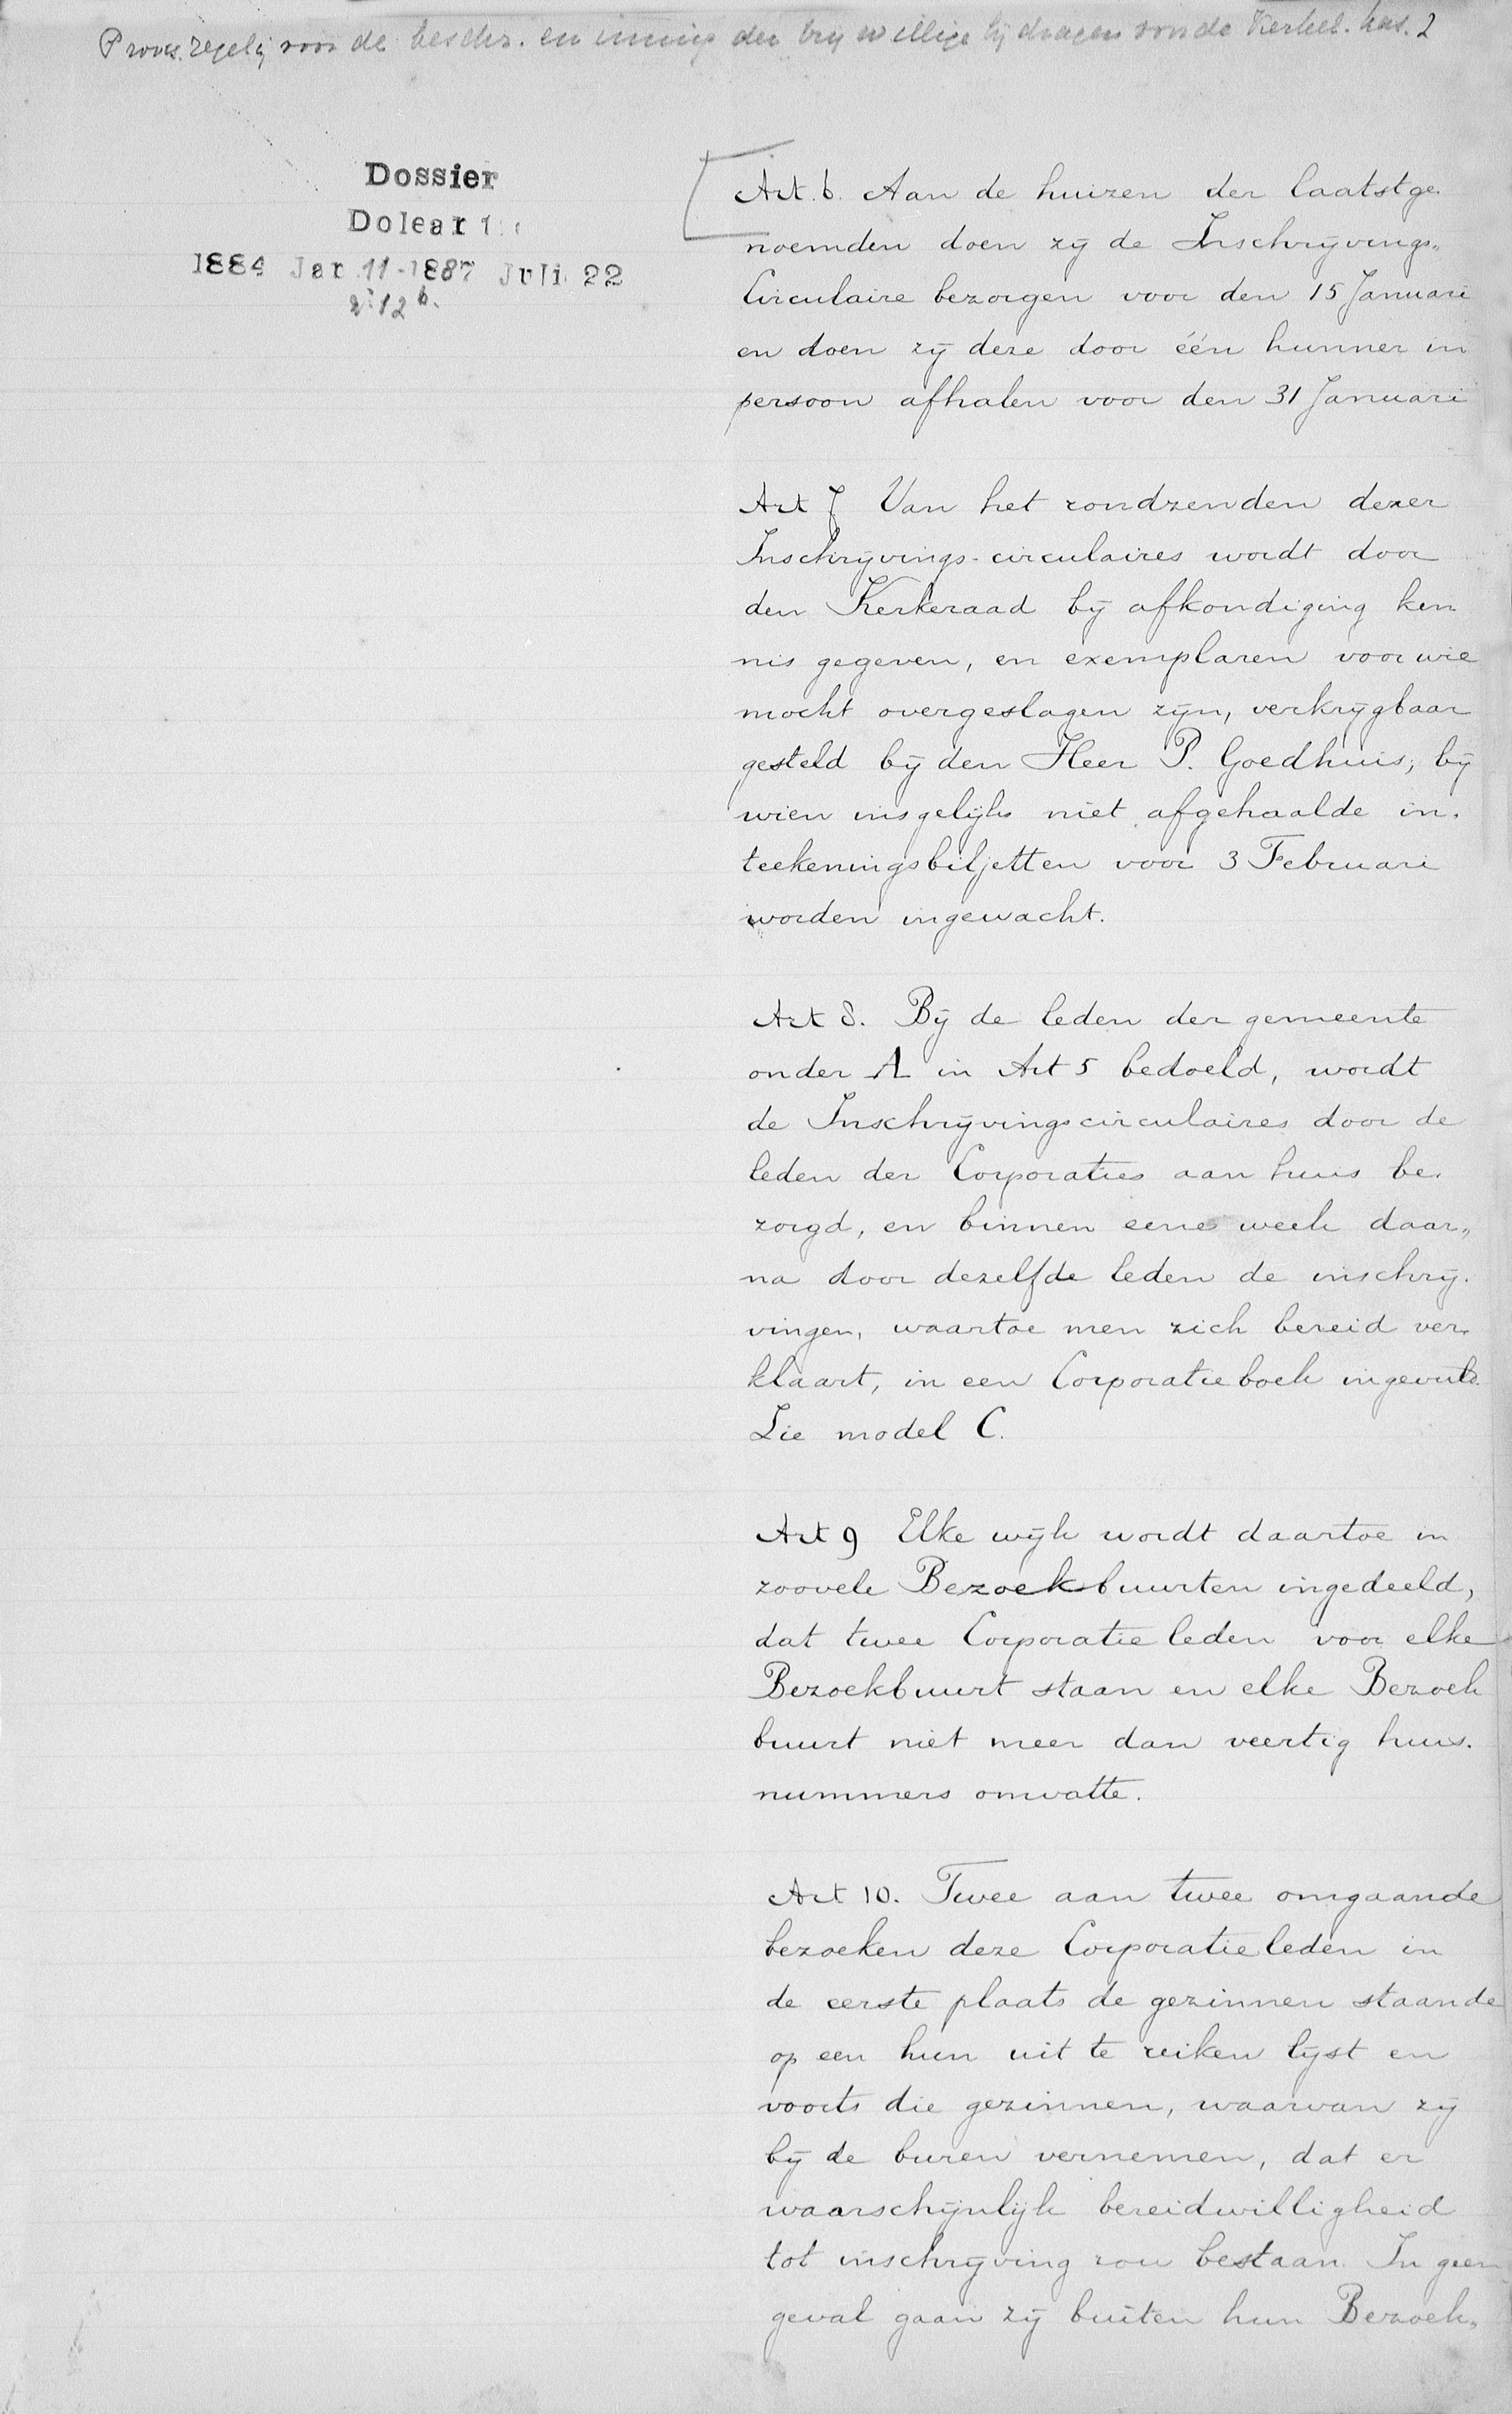 Provis. regelg voor de beschr. en inning der vrywillige bydragen voor de Kerkel. kas. 2
Dossier
Dolear
1884 Jan 11-1887 Juli 22
12 b.
Art. 6. Aan de huizen der laatstge
noemden doen zÿ de Inschrÿvings„
Circulaire bezorgen voor den 15 Januari
en doen zÿ deze door één hunner in
persoon afhalen voor den 31 Januari
Art 7 Van het rondzenden dezer
Inschrÿvings-circulaires wordt door
den Kerkeraad bÿ afkondiging ken
nis gegeven, en exemplaren voor wie
mocht overgeslagen zÿn, verkrÿgbaar
gesteld bÿ den Heer P. Goedhuis; bÿ
wien insgelÿks niet afgehaalde in.
teekeningsbiljetten voor 3 Februari
worden ingewacht.
Art 8. Bÿ de leden der gemeente
onder A in Art 5 bedoeld, wordt
de Inschrÿvingscirculaires door de
leden der Corporaties aan huis be.
zorgd, en binnen eene week daar„
na door dezelfde leden de inschrÿ.
vingen, waartoe men zich bereid ver.
klaart, in een Corporatieboek ingevuld.
Zie model C.
Art 9 Elke wÿk wordt daartoe in
zoovele Bezoekbuurten ingedeeld,
dat twee Corporatie leden voor elke
Bezoekbuurt staan en elke Bezoek
buurt niet meer dan veertig huis.
nummers omvatte.
Art 10. Twee aan twee omgaande
bezoeken deze Corporatieleden in
de eerste plaats de gezinnen staande
op een hun uit te reiken lÿst en
voorts die gezinnen, waarvan zÿ
bÿ de buren vernemen, dat er
waarschÿnlÿk bereidwilligheid
tot inschrÿving zou bestaan. In geen
geval gaan zÿ buiten hun Bezoek„